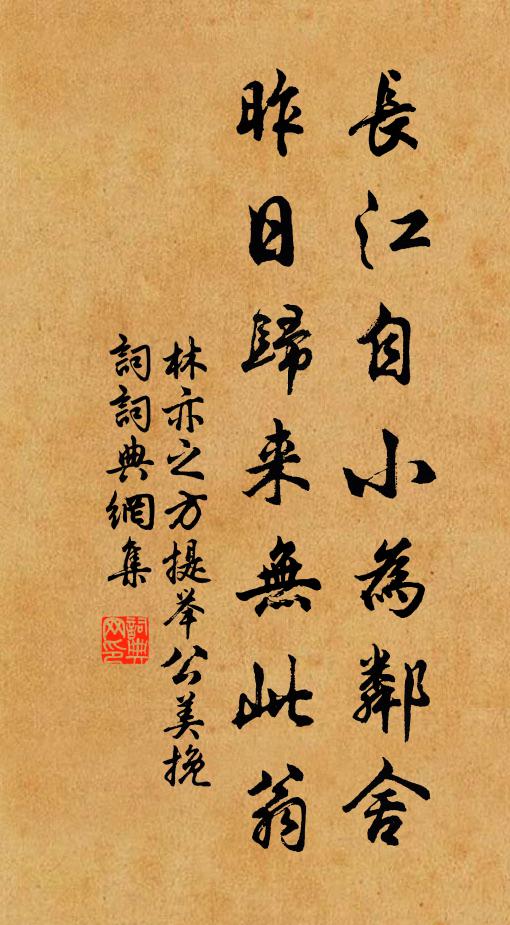 長江自小為鄰舍
昨日歸来無此翁
林亦之方提举公美挽
詞詞典網集
詞典网印